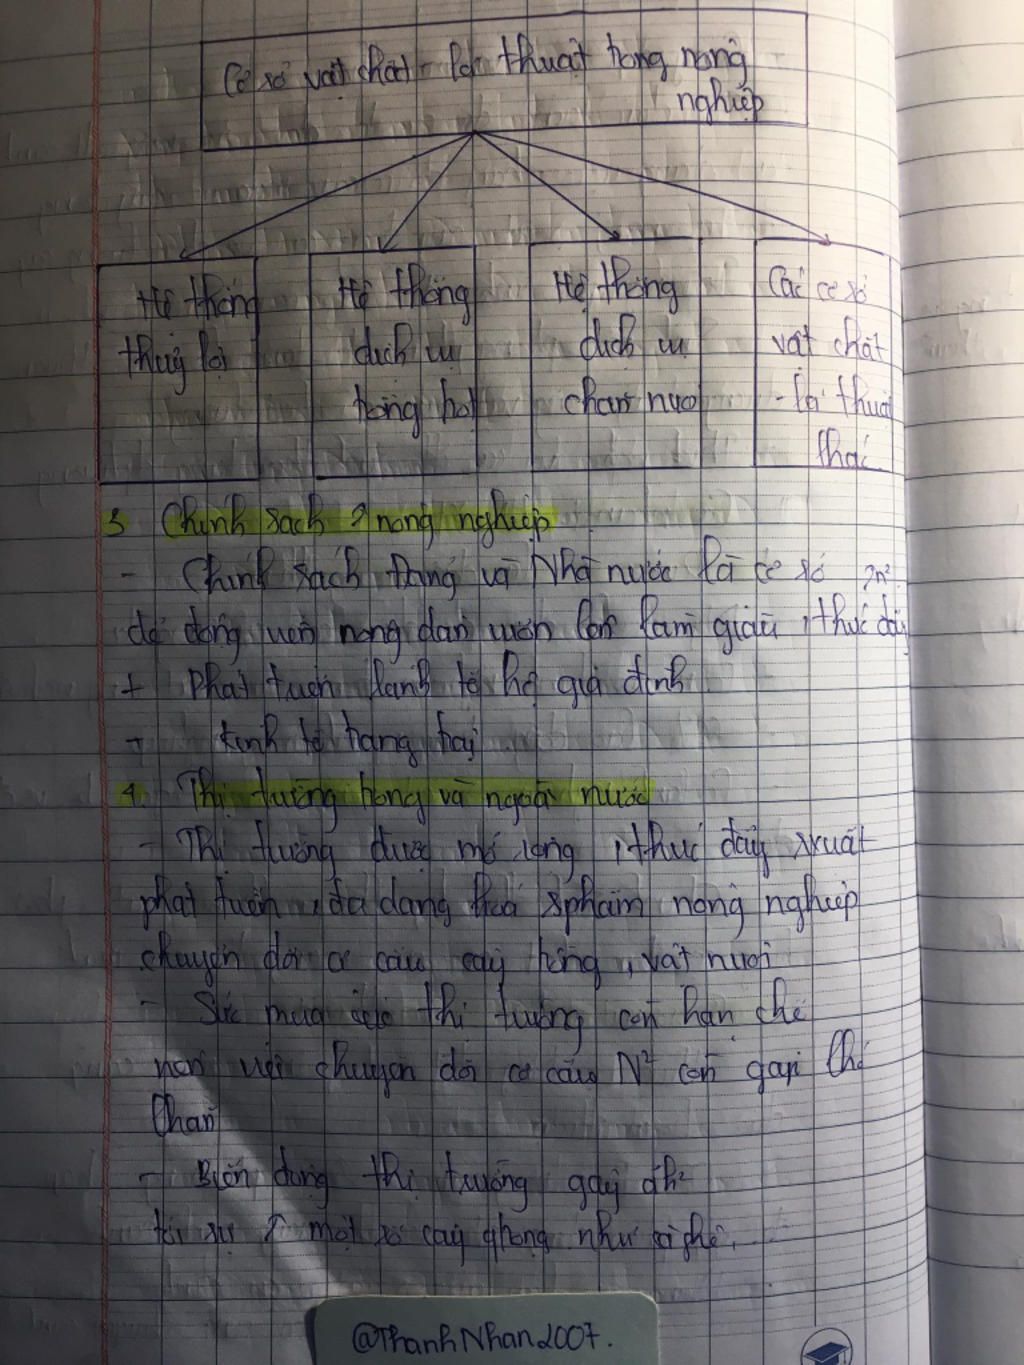 Cơ sở vật chất - kĩ thuật trong nông
nghiệp
Hệ thống
thuỷ lợi
Hệ thống
dịch vụ
trồng trọt
Hệ thống
dịch vụ
chăn nuôi
Các cơ sở
vật chất
- kĩ thuật
khác
3 Chính sách ↗ nông nghiệp
- Chính sách Đảng và Nhà nước là cơ sở ↗ n²
để động viên nông dân vươn lên làm giàu, thúc đẩy
+ Phát triển kinh tế hộ gia đình
+ kinh tế trang trại
4. Thị trường trong và ngoài nước
- Thị trường được mở rộng, thúc đẩy sxuất
phát triển, đa dạng hoá sphẩm nông nghiệp
chuyển đổi cơ cấu cây trồng, vật nuôi
- Sức mua của thị trường còn hạn chế
nên việc chuyển đổi cơ cấu N² còn gặp khó
khăn
- Biến động thị trường gây ảh²
tới sự ↗ một số cây trồng như cà phê...
@ThanhNhan2007.